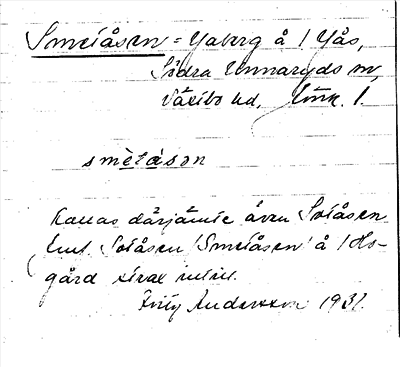 Smeåsen = Yaberg å 1 Yås,
Södra Unnaryds sn,
Västbo hd, Jönk. l.
smètåsen
Kallas därjämte även Sotåsen
Smeåsen å 1
gård strax intill.
Fritz Andersson 1931.